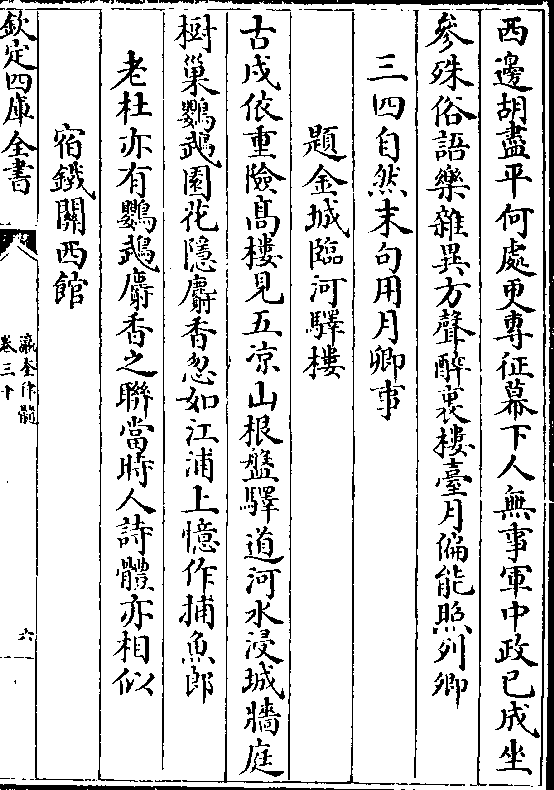 西邊胡盡平何處更專征幕下人無事軍中政已成坐
參殊俗語樂雜異方聲醉裏樓臺月偏能照列卿
三四自然末句用月卿事
題金城臨河驛樓
古戍依重險髙樓見五凉山根盤驛道河水浸城牆庭
樹巢鸚鵡園花隱麝香忽如江浦上憶作捕魚郎
老杜亦有鸚鵡麝香之聯當時人詩體亦相似
宿鐵關西館
欽定四庫全書
瀛奎律髓
卷三十
六